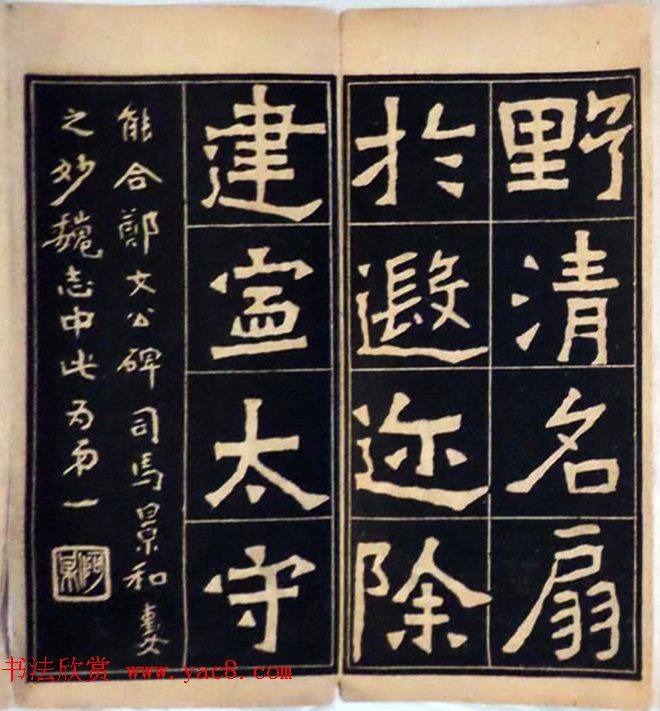 野清名扇
於遐迩除
建寍太守
能合鄭文公碑司馬景和妻
之妙魏志中此为弟一
书法欣赏 www.yac8.com